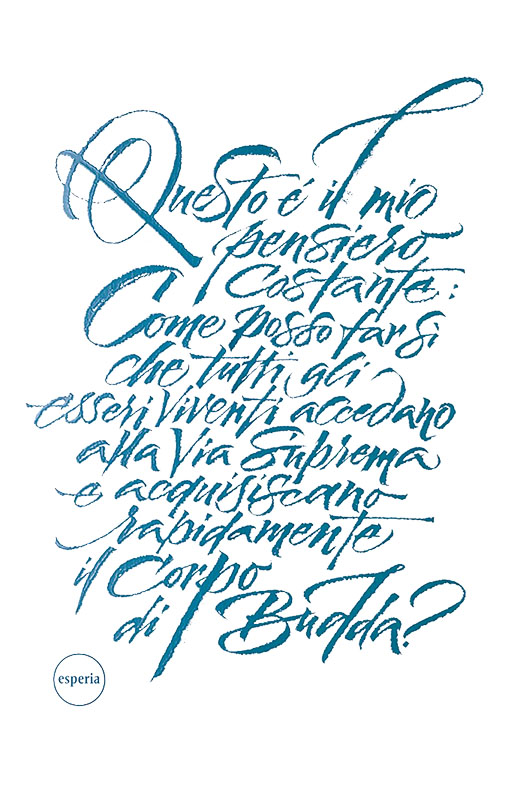 Questo é il mio
pensiero
Costante:
Come posso far sì
che tutti gli
esseri viventi accedano
alla Via Suprema
e acquisiscano
rapidamente
il Corpo
di Budda?
esperia